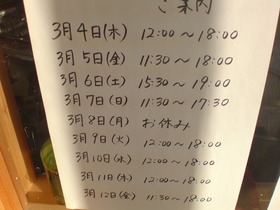 ご案内
3月4日(木) 12:00~18:00
3月5日(金) 11:30~18:00
3月6日(土) 15:30~19:00
3月7日(日) 11:30~17:30
3月8日(月) お休み
3月9日(火) 12:00~18:00
3月10日(水) 12:00~18:00
3月11日(木) 12:00~18:00
3月12日(金) 11:30~18:00